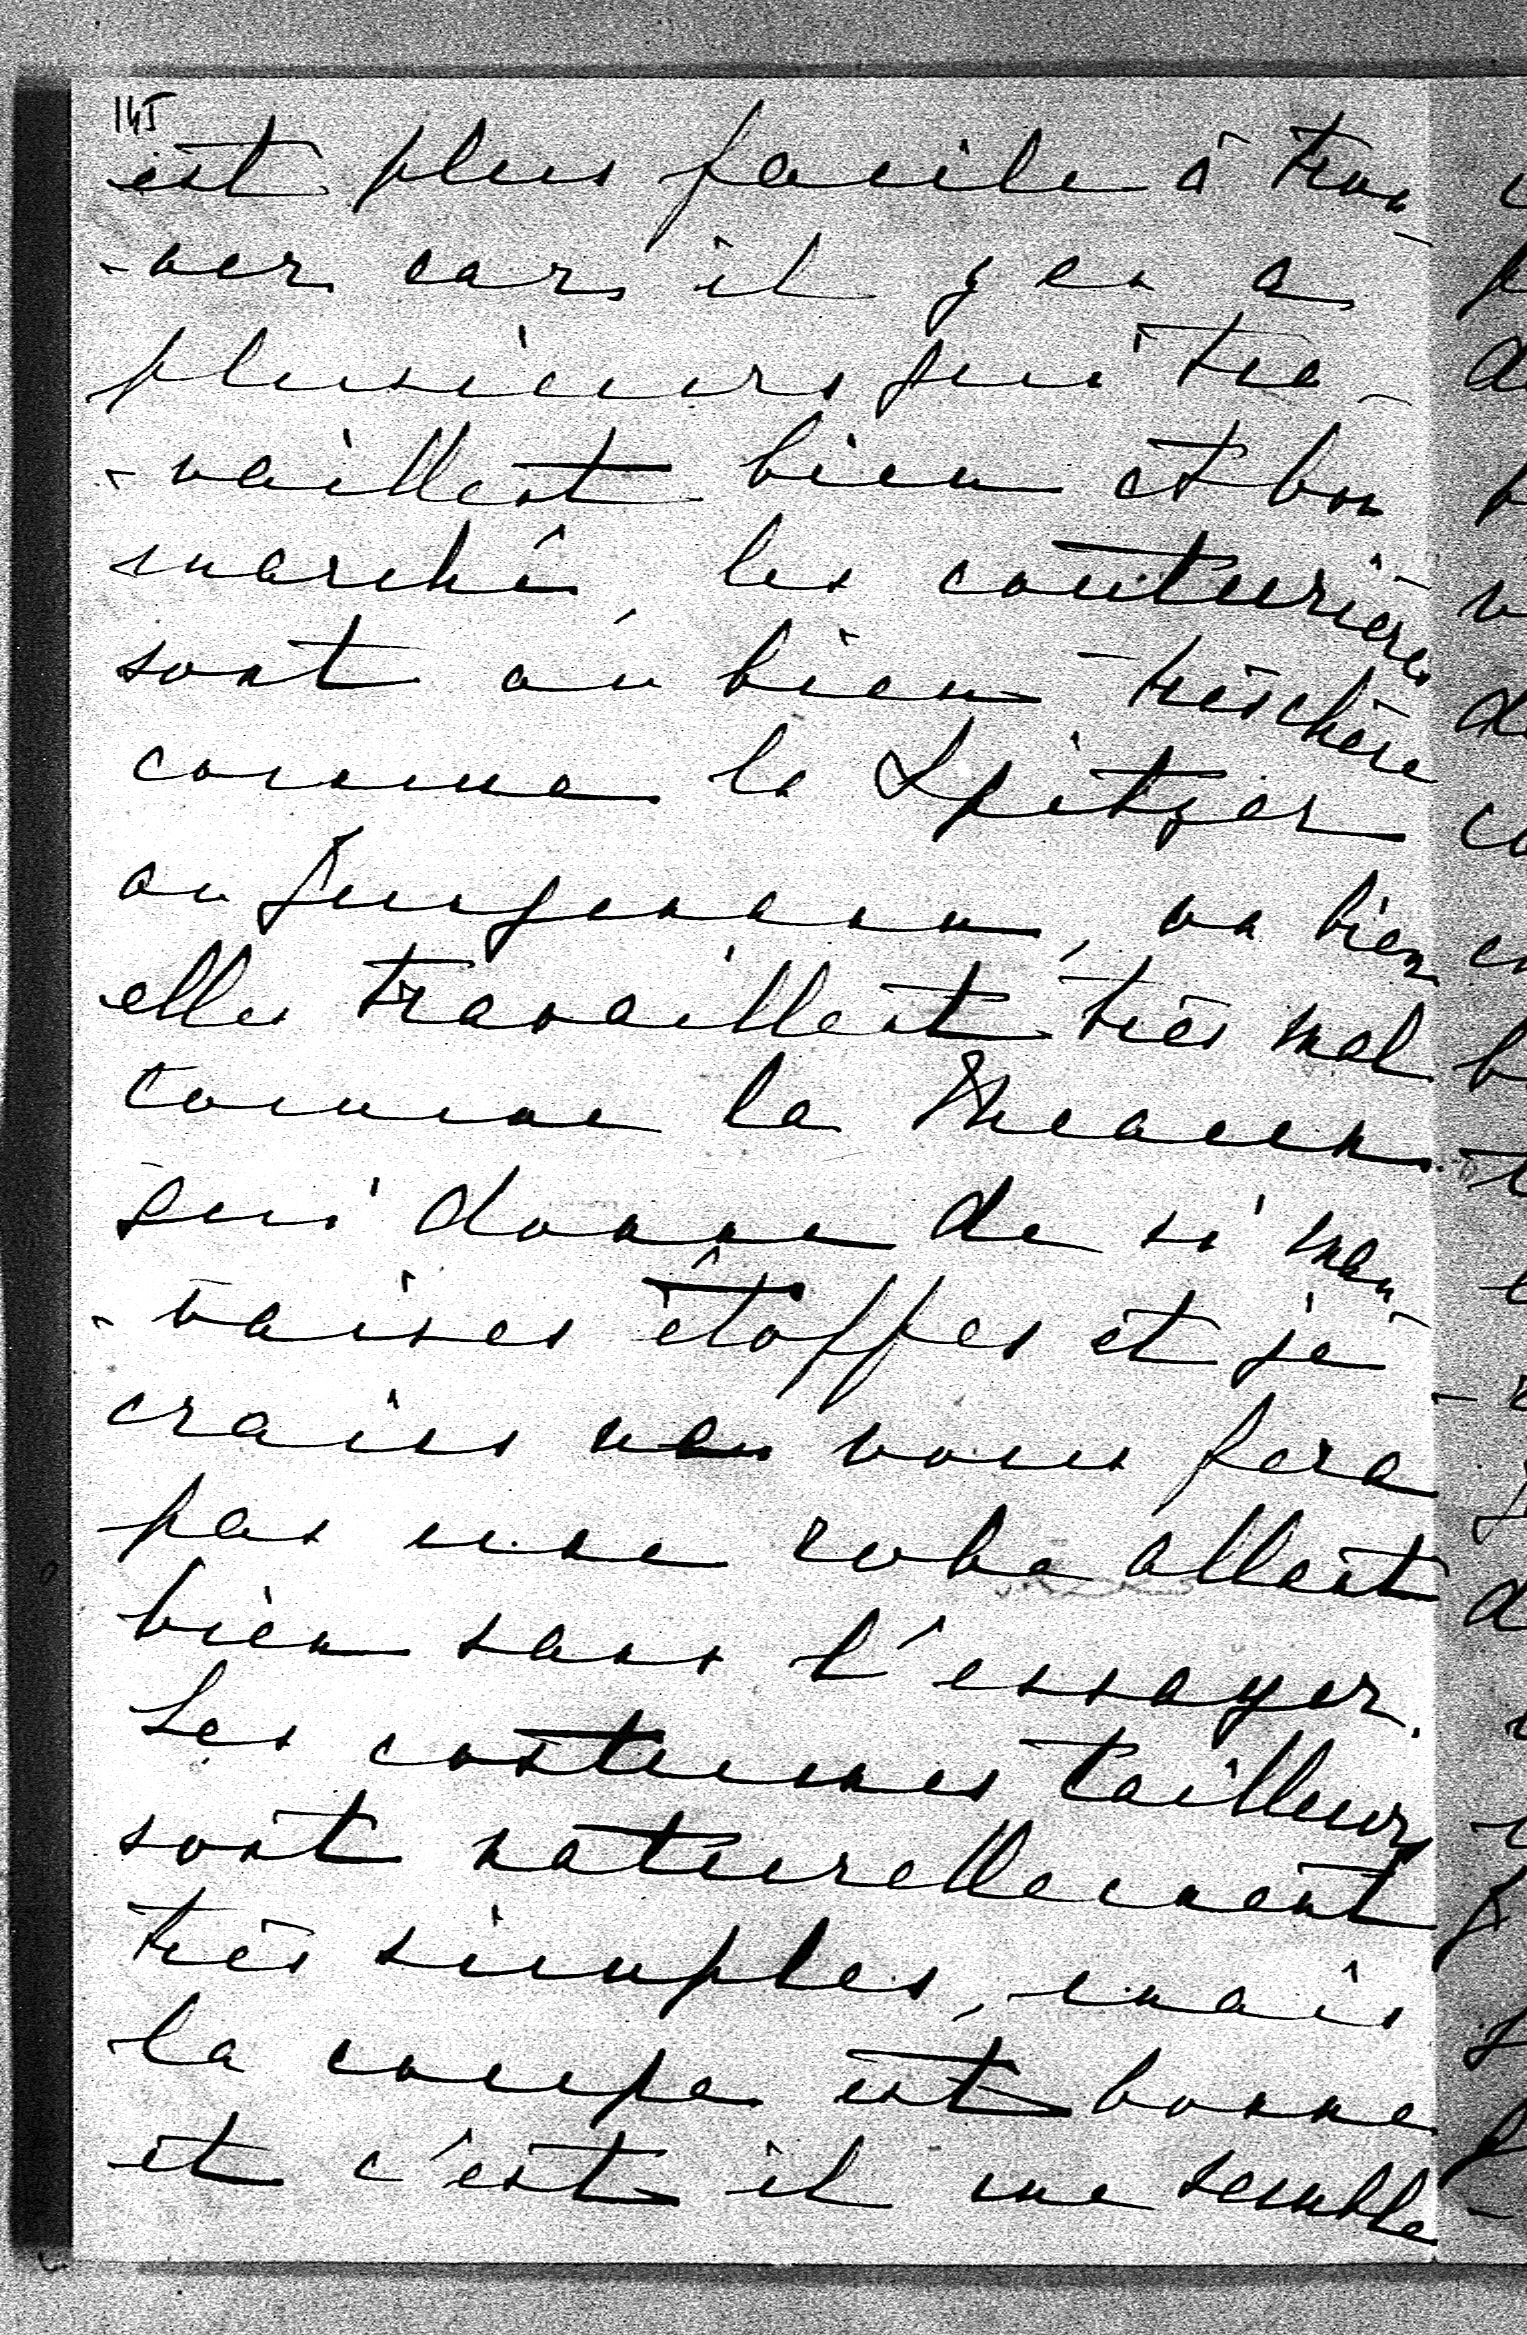 145
est plus facile à trou-
-ver car il y en a
plusieurs qui tra-
-vaillent bien et bon
marché, les couturières
sont ou bien très chère
comme la Spitzer
ou Jungmann, ou bien
elles travaillent très mal
comme la
qui donne de si mau-
-vaises étoffes et je
crains ne vous fera
pas une robe allant
bien sans l'essayer.
Les costumes tailleurs
sont naturellement
très simples, mais
la coupe est bonne
et c'est il me semble